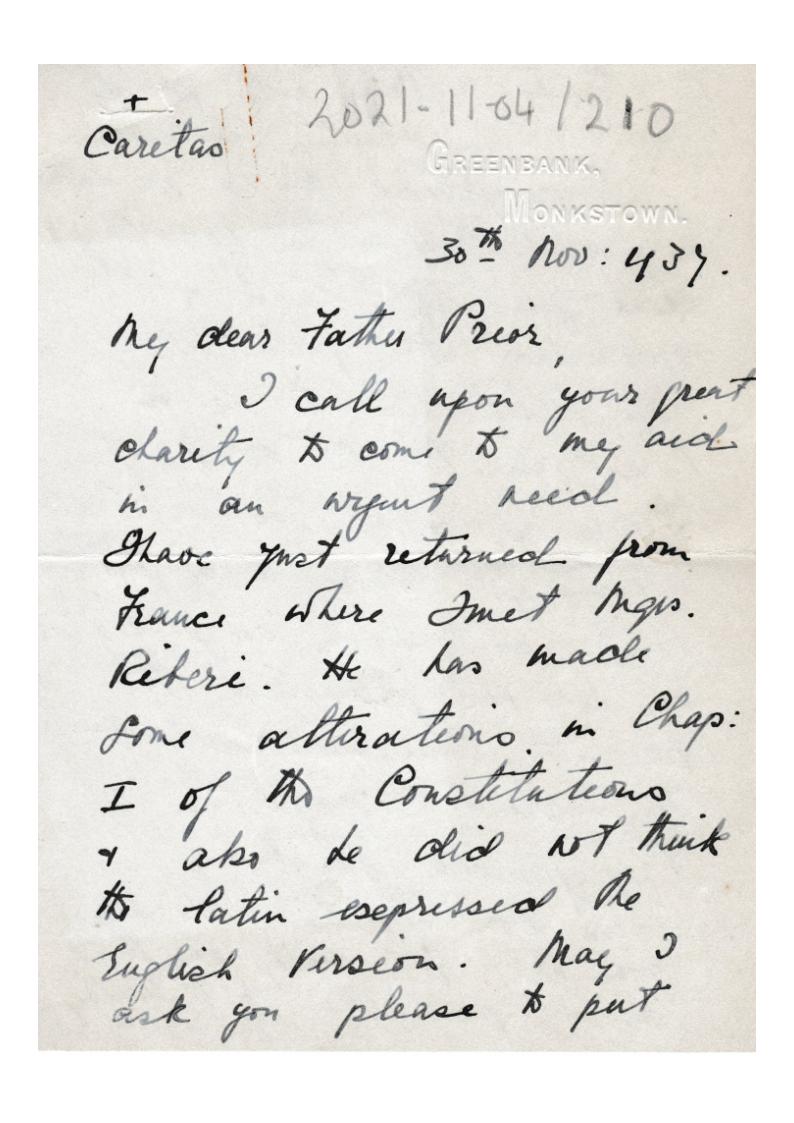 +
Caritas
2021-11-04/210
GREENBANK,
MONKSTOWN.
30th Nov: 1937.
My dear Father Prior,
I call upon your great
charity to come to my aid
in an urgent need.
I have just returned from
France where I met Mgr.
Riberi. He has made
some alterations in Chap:
I of the Constitutions
& also he did not think
the latin expressed the
English Version. May I
ask you please to put